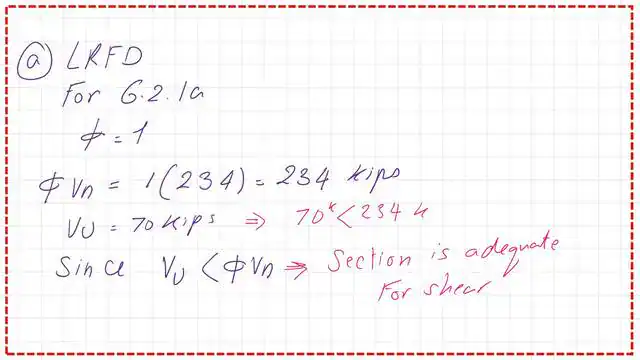 a LRFD
For G.2.1a
ϕ = 1
ϕ Vn = 1(234) = 234 kips
VU = 70 kips ⇒ 70ᵏ < 234 k
Since VU < ϕ Vn ⇒ Section is adequate
For shear